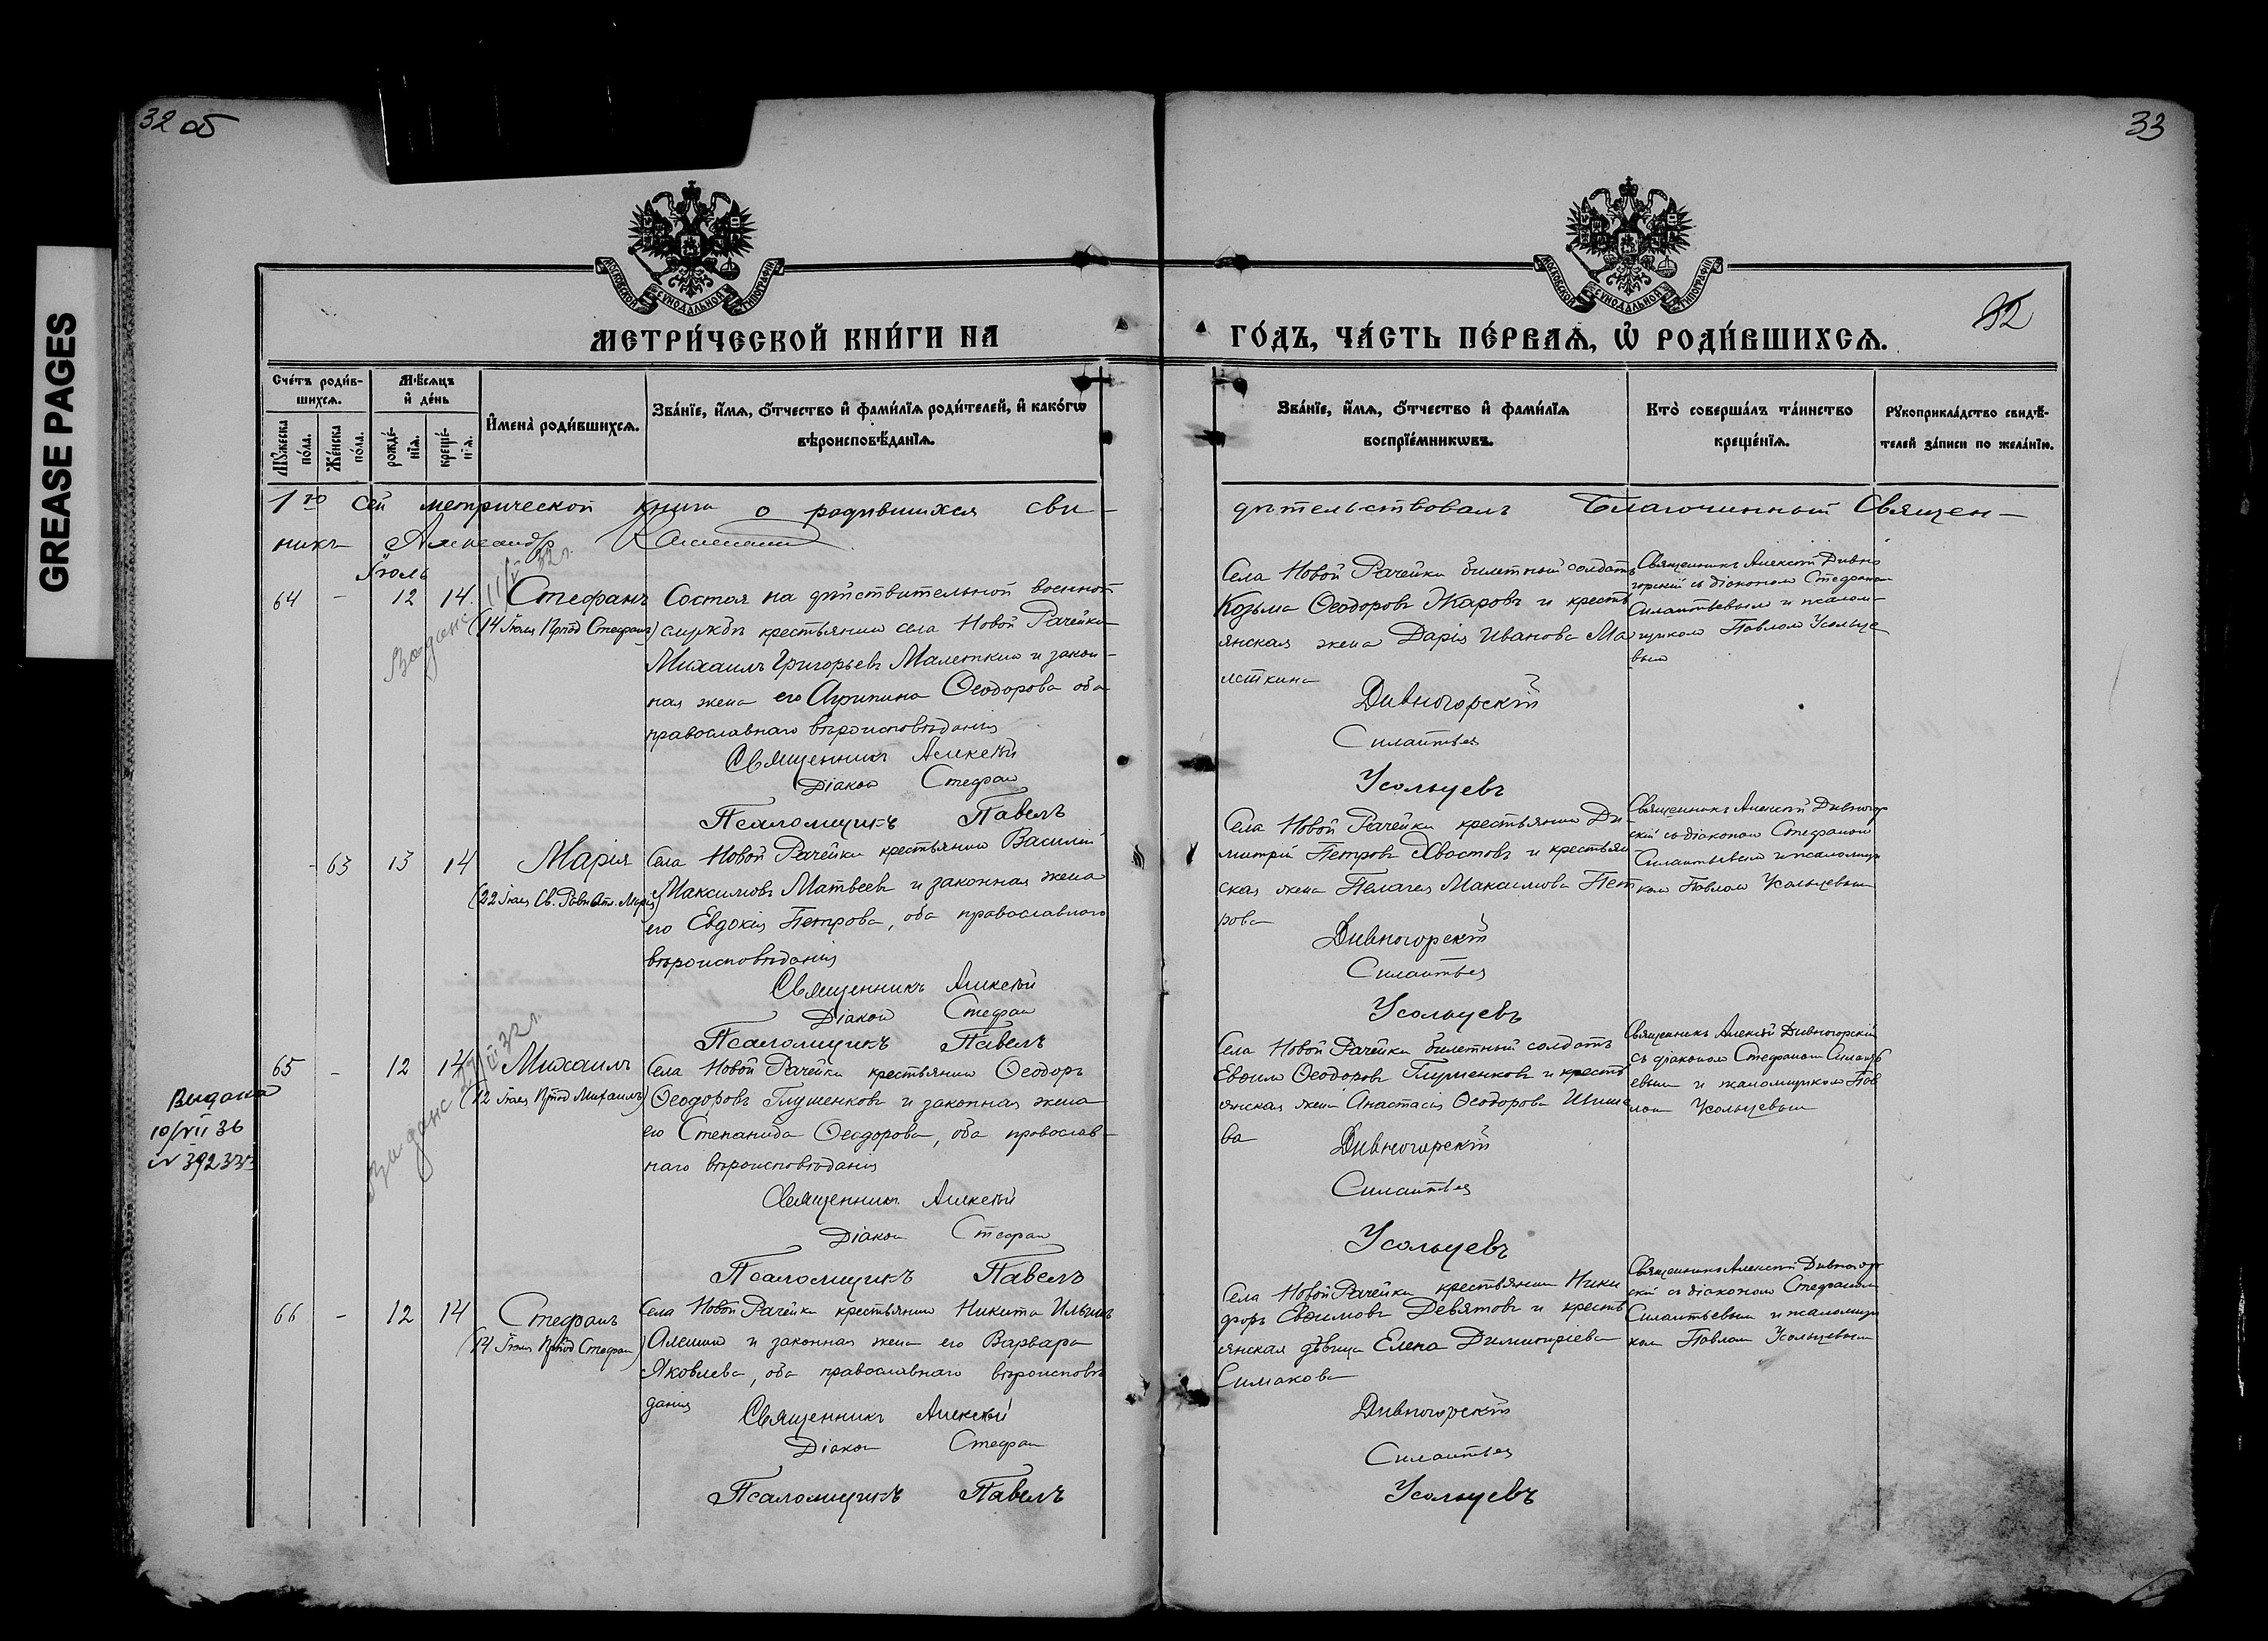 32 об
33
GREASE PAGES
МОСКОВСКОЙ СѴНОДАЛЬНОЙ ТИПОГРАФІИ
МОСКОВСКОЙ СѴНОДАЛЬНОЙ ТИПОГРАФІИ
МЕТРИ́ЧЕСКОЙ КНИ́ГИ НА
ГО́ДЪ, ЧА́СТЬ ПЕ́РВАѦ, Ѡ҆ РОДИ́ВШИХСѦ.
32
Сче́тъ роди́в-
шихсѧ.
Мѣ́сѧцъ
и҆ де́нь
Мꙋ́жеска
по́ла.
Же́нска
по́ла.
рожде́-
нїѧ.
креще́-
нїѧ.
И҆мена̀ роди́вшихсѧ.
Зва́нїе, и҆́мѧ, ѻ҆́тчество и҆ фами́лїѧ роди́телей, и҆ како́гѡ
вѣроисповѣ́данїѧ.
Зва́нїе, и҆́мѧ, ѻ҆́тчество и҆ фами́лїѧ
воспрїе́мникѡвъ.
Кто̀ соверша́лъ та́инство
креще́нїѧ.
Рꙋкоприкла́дство свидѣ́-
телей за́писи по жела́нїю.
1го сей метрической книги о родившихся сви-
дѣтельствовалъ Благочинный Священ-
никъ Александр
Іюль
64 - 12 14 Стефанъ
(14 Іюля Прпод Стефанъ)
Состоя на дѣйствительной военной
службѣ крестьянин села Новой Рачейки
Михаилъ Григорьевъ Малеткин и закон-
ная жена его Агрипина Ѳеодорова оба
православнаго вѣроисповѣданія
Священникъ Алексѣй
Діакон Стефан
Псаломщикъ Павелъ
Села Новой Рачейки билетный солдатъ
Козьма Ѳеодоровъ Жаровъ и кресть
янская жена Дарія Иванова Ма
леткина
Дивногорскій
Силантьев
Усольцевъ
Священникъ Алексѣй Дивно
горскій съ діаконом Стефаном
Силантьевым и псалом-
щиком Павлом Усольце
вым
- 63 13 14 Марія
(22 Іюля Св. Равноап. Марія)
Села Новой Рачейки крестьянин Василій
Максимовъ Матвеев и законная жена
его Евдокія Петрова, оба православного
вѣроисповѣданія
Священникъ Алексѣй
Діакон Стефан
Псаломщикъ Павелъ
Села Новой Рачейки крестьянин Ди-
митрій Петровъ Хвостовъ и крестьян
ская жена Пелагея Максимова Пет
рова
Дивногорскій
Силантьев
Усольцевъ
Священникъ Алексѣй Дивногор
скій съ діаконом Стефаном
Силантьевым и псаломщи
ком Павлом Усольцевым
65 - 12 14 Михаилъ
(12 Іюля Прпод Михаилъ)
Выдана
10/VII 36
Села Новой Рачейки крестьянин Ѳеодоръ
Ѳеодоровъ Глушенковъ и законная жена
его Степанида Ѳеодорова, оба православ-
наго вѣроисповѣданія
Священникъ Алексѣй
Діакон Стефан
Псаломщикъ Павелъ
Села Новой Рачейки билетный солдатъ
Евѳим Ѳеодоровъ Глушенковъ и кресть
янская жена Анастасія Ѳеодорова
ва
Дивногорскій
Силантьев
Усольцевъ
Священникъ Алексѣй Дивногорскій
съ діаконом Стефаном Силанть
евым и псаломщиком Пав
лом Усольцевым
66 - 12 14 Стефанъ
(14 Іюля Прпод Стефан)
Села Новой Рачейки крестьянин Никита Ильинъ
Алешин и законная жена его Варвара
Яковлева, оба православнаго вѣроисповѣ
данія
Священникъ Алексѣй
Діакон Стефан
Псаломщикъ Павелъ
Села Новой Рачейки крестьянин Ники
форъ Евѳимовъ Девятовъ и кресть
янская дѣвица Елена Димитріева
Симакова
Дивногорскій
Силантьев
Усольцевъ
Священникъ Алексѣй Дивногор
скій съ діаконом Стефаном
Силантьевым и псаломщи
ком Павлом Усольцевым